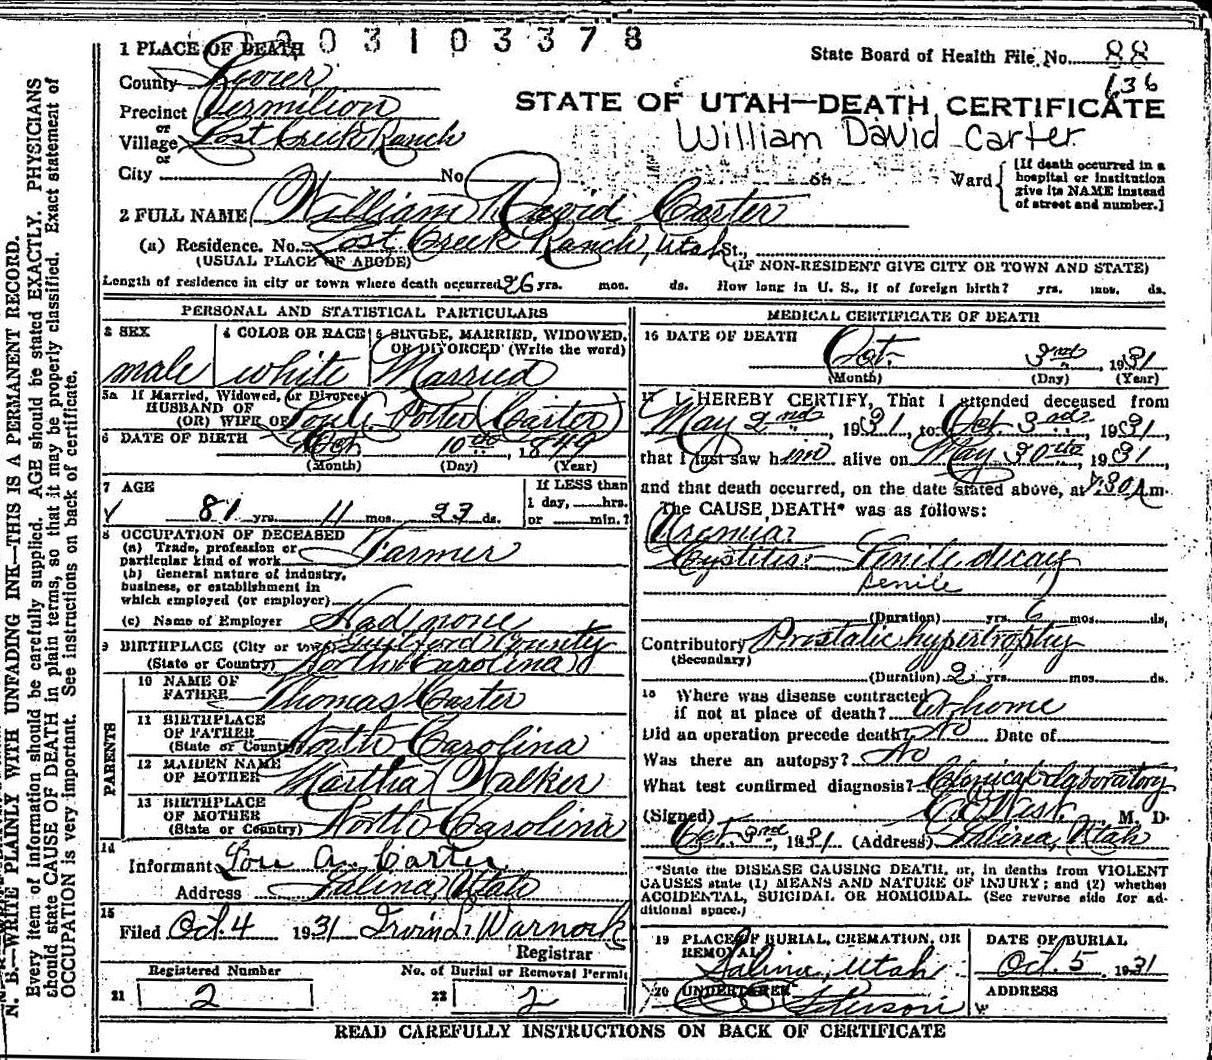 1 PLACE OF DEATH 003103378
State Board of Health File No. 88
136
County Sevier
STATE OF UTAH—DEATH CERTIFICATE
Precinct Vermilion
William David Carter
or
Village Lost Creek Ranch
or
City No. St. Ward
[If death occurred in a hospital or institution give its NAME instead of street and number.]
2 FULL NAME William David Carter
(a) Residence. No. Lost Creek Ranch, Utah St.,
(USUAL PLACE OF ABODE) (IF NON-RESIDENT GIVE CITY OR TOWN AND STATE)
Length of residence in city or town where death occurred 26 yrs. mos. ds. How long in U. S., if of foreign birth? yrs. mos. ds.
PERSONAL AND STATISTICAL PARTICULARS
3 SEX
male
4 COLOR OR RACE
white
5 SINGLE, MARRIED, WIDOWED, OR DIVORCED (Write the word)
Married
5a If Married, Widowed, or Divorced
HUSBAND OF
(OR) WIFE OF Potter (Carter)
6 DATE OF BIRTH Oct 10th, 1849
(Month) (Day) (Year)
7 AGE
81 yrs. 11 mos. 23 ds.
If LESS than
1 day, hrs.
or min.?
8 OCCUPATION OF DECEASED
(a) Trade, profession or
particular kind of work Farmer
(b) General nature of industry,
business, or establishment in
which employed (or employer)
(c) Name of Employer Had none
9 BIRTHPLACE (City or town) Guilford County
(State or Country) North Carolina
PARENTS
10 NAME OF
FATHER Thomas Carter
11 BIRTHPLACE
OF FATHER
(State or Country) North Carolina
12 MAIDEN NAME
OF MOTHER Martha Walker
13 BIRTHPLACE
OF MOTHER
(State or Country) North Carolina
14
Informant Lou A. Carter
Address Salina, Utah
15
Filed Oct. 4 1931 Irvin L. Warnock
Registrar
Registered Number
21 2
No. of Burial or Removal Permit
22 2
MEDICAL CERTIFICATE OF DEATH
16 DATE OF DEATH
Oct. 3rd, 1931
(Month) (Day) (Year)
17 I HEREBY CERTIFY, That I attended deceased from
May 2nd, 1931, to Oct. 3rd, 1931,
that I last saw him alive on May 30th, 1931,
and that death occurred, on the date stated above, at 7:30 A.m.
The CAUSE DEATH* was as follows:
Uremia:
Cystitis: Senile decay
senile
(Duration) yrs. 6 mos. ds.
Contributory Prostatic hypertrophy
(Secondary)
(Duration) 2 yrs. mos. ds.
18 Where was disease contracted
if not at place of death? At home
Did an operation precede death? No Date of
Was there an autopsy? No
What test confirmed diagnosis? Clinical & laboratory
(Signed) West, M. D.
Oct. 3rd, 1931 (Address) Salina, Utah
*State the DISEASE CAUSING DEATH, or, in deaths from VIOLENT
CAUSES state (1) MEANS AND NATURE OF INJURY; and (2) whether
ACCIDENTAL, SUICIDAL OR HOMICIDAL. (See reverse side for ad-
ditional space.)
19 PLACE OF BURIAL, CREMATION, OR
REMOVAL
Salina, Utah
DATE OF BURIAL
Oct. 5, 1931
20 UNDERTAKER
ADDRESS
READ CAREFULLY INSTRUCTIONS ON BACK OF CERTIFICATE
N. B.—WRITE PLAINLY WITH UNFADING INK—THIS IS A PERMANENT RECORD.
Every item of information should be carefully supplied. AGE should be stated EXACTLY. PHYSICIANS
should state CAUSE OF DEATH in plain terms, so that it may be properly classified. Exact statement of
OCCUPATION is very important. See instructions on back of certificate.